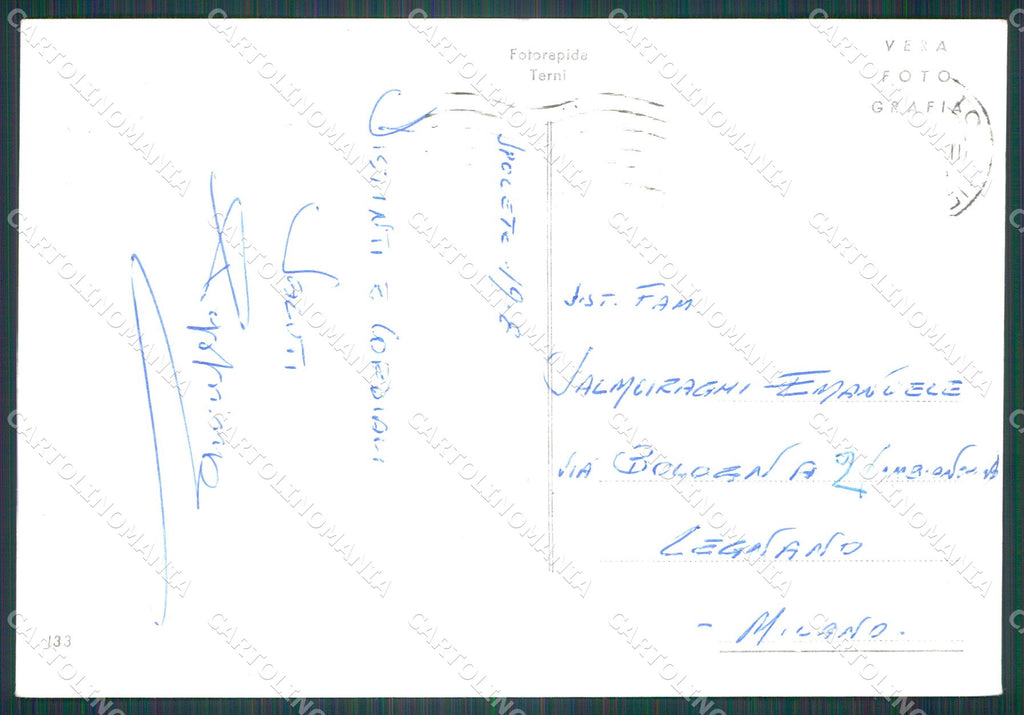 Fotorapida
Terni
VERA
FOTO
GRAFIA
DISTINTI E CORDIALI
SALUTI
DIST. FAM
SALMOIRAGHI EMANUELE
VIA BOLOGNA 2
LEGNANO
- MILANO.
133
CARTOLINOMANIA